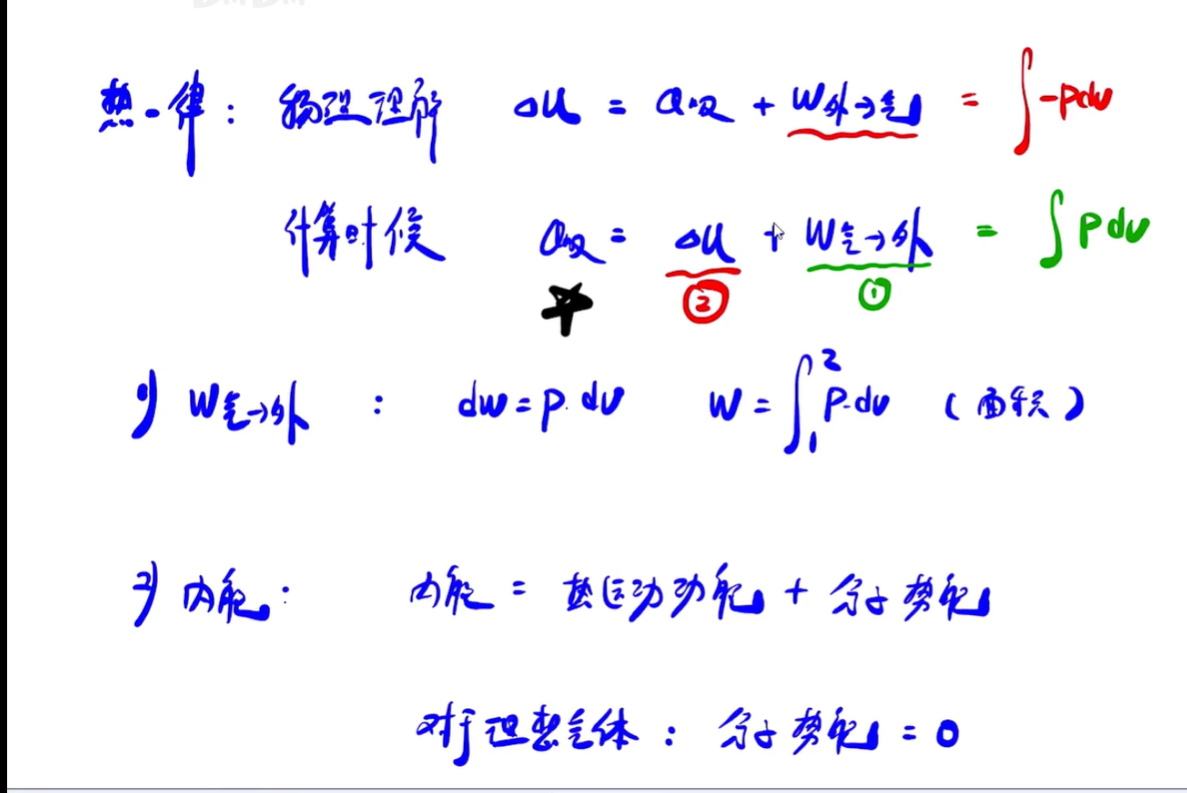 热一律： 物理理解 ΔU = Q吸 + W外→气 = ∫-Pdv
计算时候 Q吸 = ΔU + W气→外 = ∫Pdv
② ①
1) W气→外 ： dw = P·dv W = ∫₁² P·dv （面积）
2) 内能： 内能 = 热运动动能 + 分子势能
对于理想气体： 分子势能 = 0